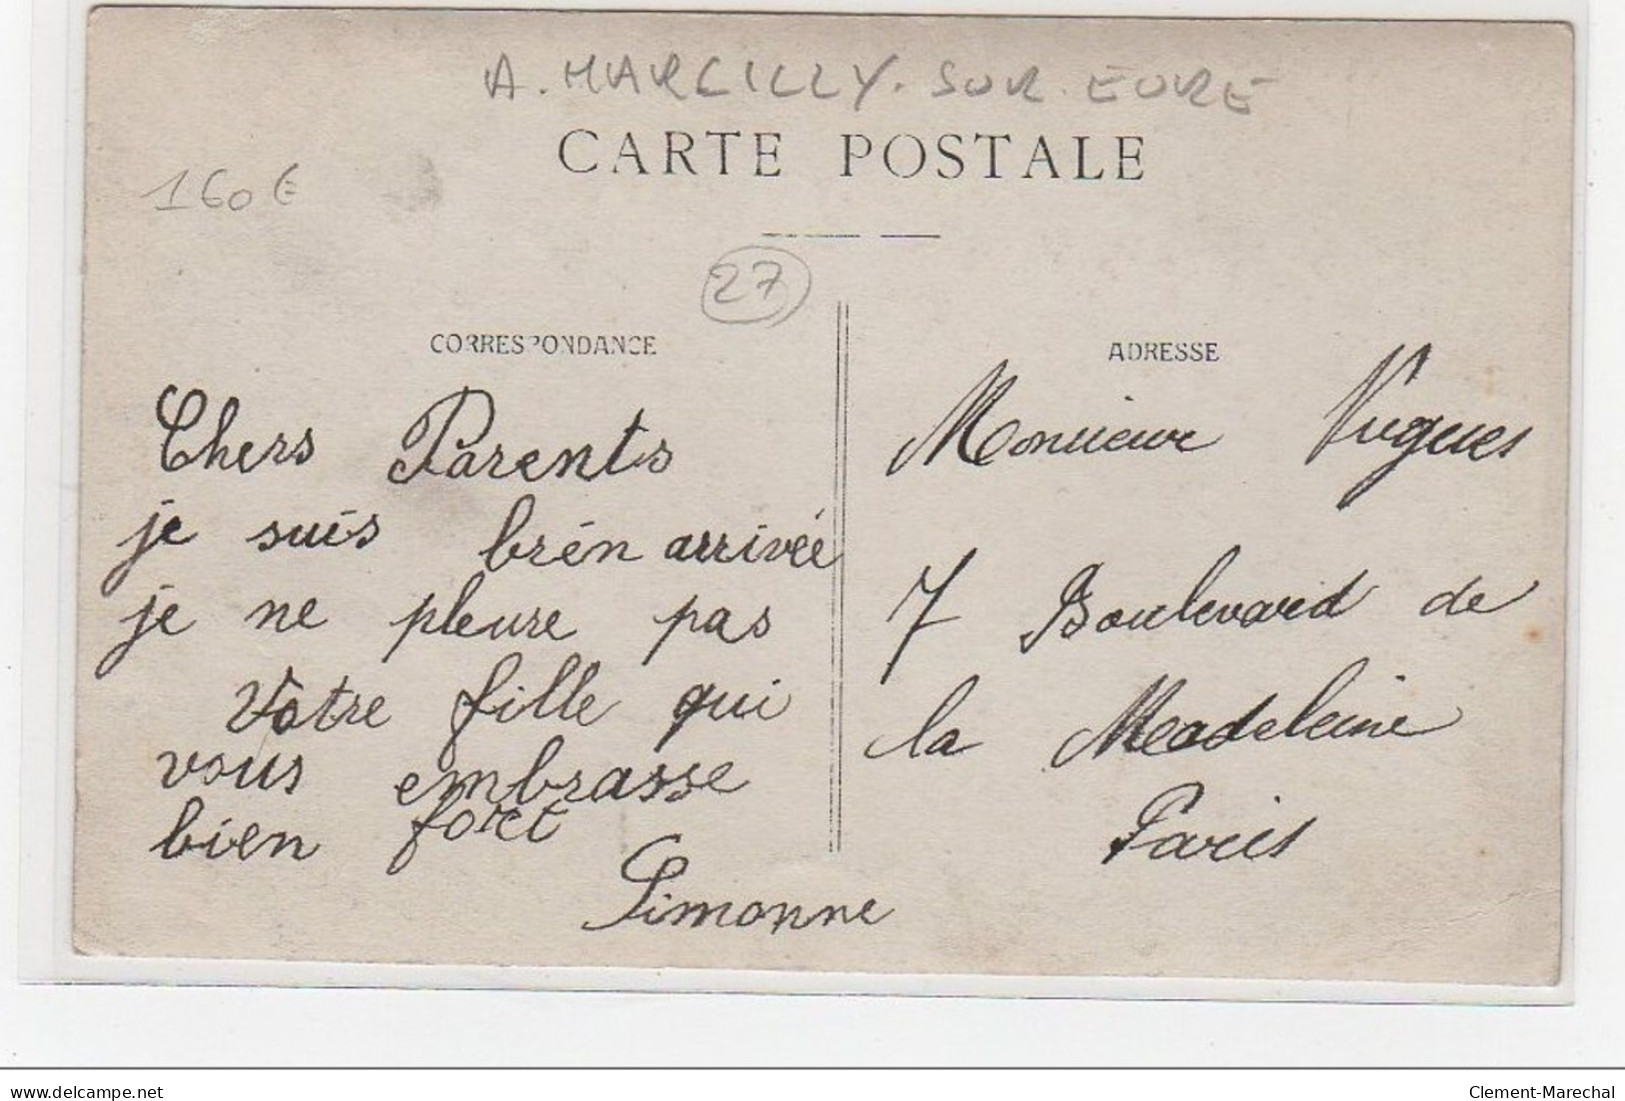 A. MARCILLY. SUR. EURE
CARTE POSTALE
160€
27
CORRESPONDANCE
Chers Parents
je suis bien arrivée
je ne pleure pas
Votre fille qui
vous embrasse
bien fort
Simonne
ADRESSE
Monsieur
7 Boulevard de
la Madeleine
Paris
delcampe.net
Clement-Marechal